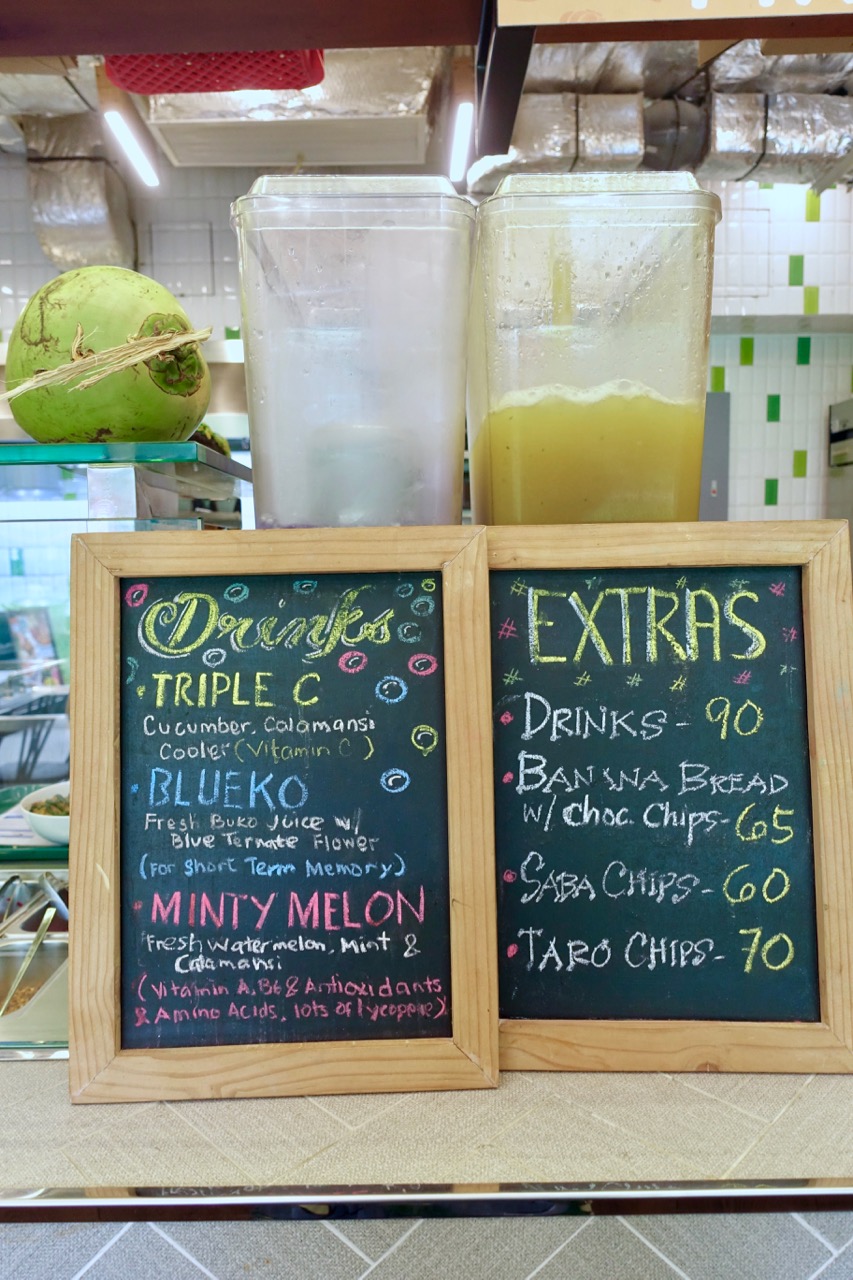 Drinks
TRIPLE C
Cucumber, Calamansi
Cooler (Vitamin C)
BLUEKO
Fresh Buko Juice w/
Blue Ternate Flower
(For Short Term Memory)
MINTY MELON
Fresh Watermelon, Mint &
Calamansi
(Vitamin A, B6 & Antioxidants
& Amino Acids, lots of lycopene)
# # # #
EXTRAS
# # # # #
DRINKS - 90
BANANA BREAD
w/ Choc Chips - 65
SABA CHIPS - 60
TARO CHIPS - 70